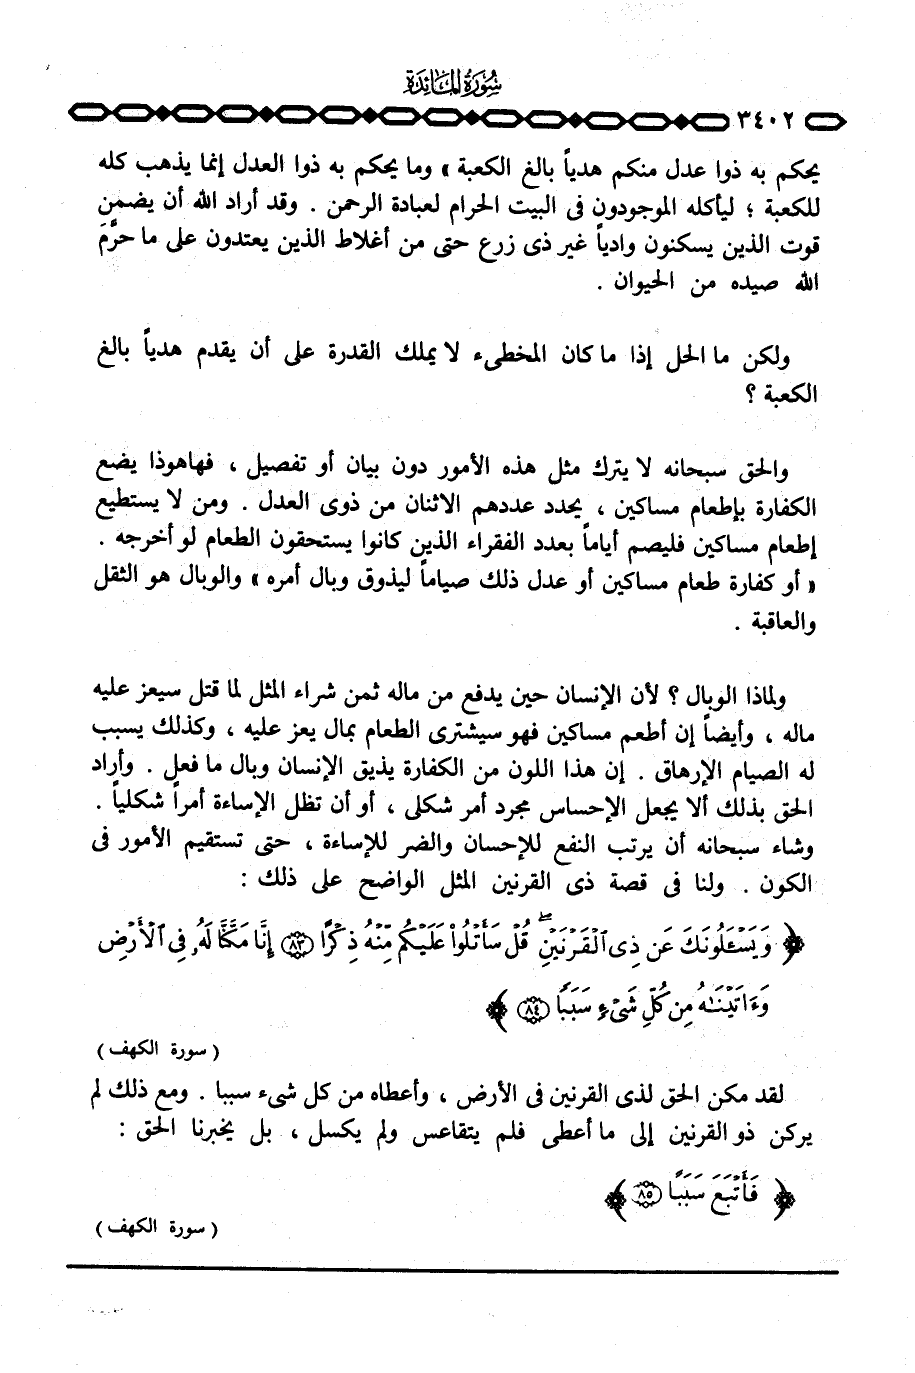 سُورَةُ المَائِدَة
٣٤٠٢
يحكم به ذوا عدل منكم هدياً بالغ الكعبة » وما يحكم به ذوا العدل إنما يذهب كله
للكعبة ؛ ليأكله الموجودون فى البيت الحرام لعبادة الرحمن . وقد أراد الله أن يضمن
قوت الذين يسكنون وادياً غير ذى زرع حتى من أغلاط الذين يعتدون على ما حرَّمَ
الله صيده من الحيوان .
ولكن ما الحل إذا ما كان المخطىء لا يملك القدرة على أن يقدم هدياً بالغ
الكعبة ؟
والحق سبحانه لا يترك مثل هذه الأمور دون بيان أو تفصيل ، فهاهوذا يضع
الكفارة بإطعام مساكين ، يحدد عددهم الاثنان من ذوى العدل . ومن لا يستطيع
إطعام مساكين فليصم أياماً بعدد الفقراء الذين كانوا يستحقون الطعام لو أخرجه .
« أو كفارة طعام مساكين أو عدل ذلك صياماً ليذوق وبال أمره » والوبال هو الثقل
والعاقبة .
ولماذا الوبال ؟ لأن الإنسان حين يدفع من ماله ثمن شراء المثل لما قتل سيعز عليه
ماله ، وأيضاً إن أطعم مساكين فهو سيشترى الطعام بمال يعز عليه ، وكذلك يسبب
له الصيام الإرهاق . إن هذا اللون من الكفارة يذيق الإنسان وبال ما فعل . وأراد
الحق بذلك ألا يجعل الإحساس مجرد أمر شكلى ، أو أن تظل الإساءة أمراً شكلياً .
وشاء سبحانه أن يرتب النفع للإحسان والضر للإساءة ، حتى تستقيم الأمور فى
الكون . ولنا فى قصة ذى القرنين المثل الواضح على ذلك :
﴿ وَيَسْـَٔلُونَكَ عَن ذِى ٱلْقَرْنَيْنِ ۖ قُلْ سَأَتْلُوا۟ عَلَيْكُم مِّنْهُ ذِكْرًا ۝٨٣ إِنَّا مَكَّنَّا لَهُۥ فِى ٱلْأَرْضِ
وَءَاتَيْنَـٰهُ مِن كُلِّ شَىْءٍ سَبَبًا ۝٨٤ ﴾
( سورة الكهف )
لقد مكن الحق لذى القرنين فى الأرض ، وأعطاه من كل شىء سببا . ومع ذلك لم
يركن ذو القرنين إلى ما أعطى فلم يتقاعس ولم يكسل ، بل يخبرنا الحق :
﴿ فَأَتْبَعَ سَبَبًا ۝٨٥ ﴾
( سورة الكهف )